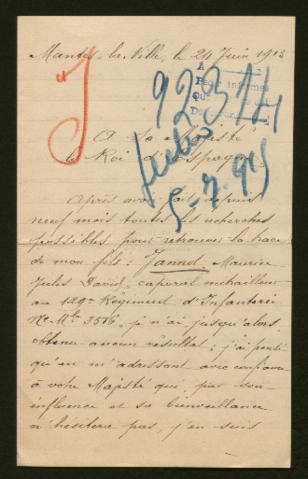 Mantes-la-Ville, le 24 Juin 1915
J
A
923 H
5.7.915
A Sa Majesté
le Roi d'Espagne
Après avoir fait depuis
neuf mois toutes les recherches
possibles pour retrouver la trace
de mon fils: Jannot, Maurice
Jules David, caporal mitrailleur
au 129e Régiment d'Infanterie
No Mle 3516, je n'ai jusqu'alors
obtenu aucun résultat; j'ai pensé
qu'en m'adressant avec confiance
à votre Majesté qui, par son
influence et sa bienveillance
n'hésitera pas, j'en suis